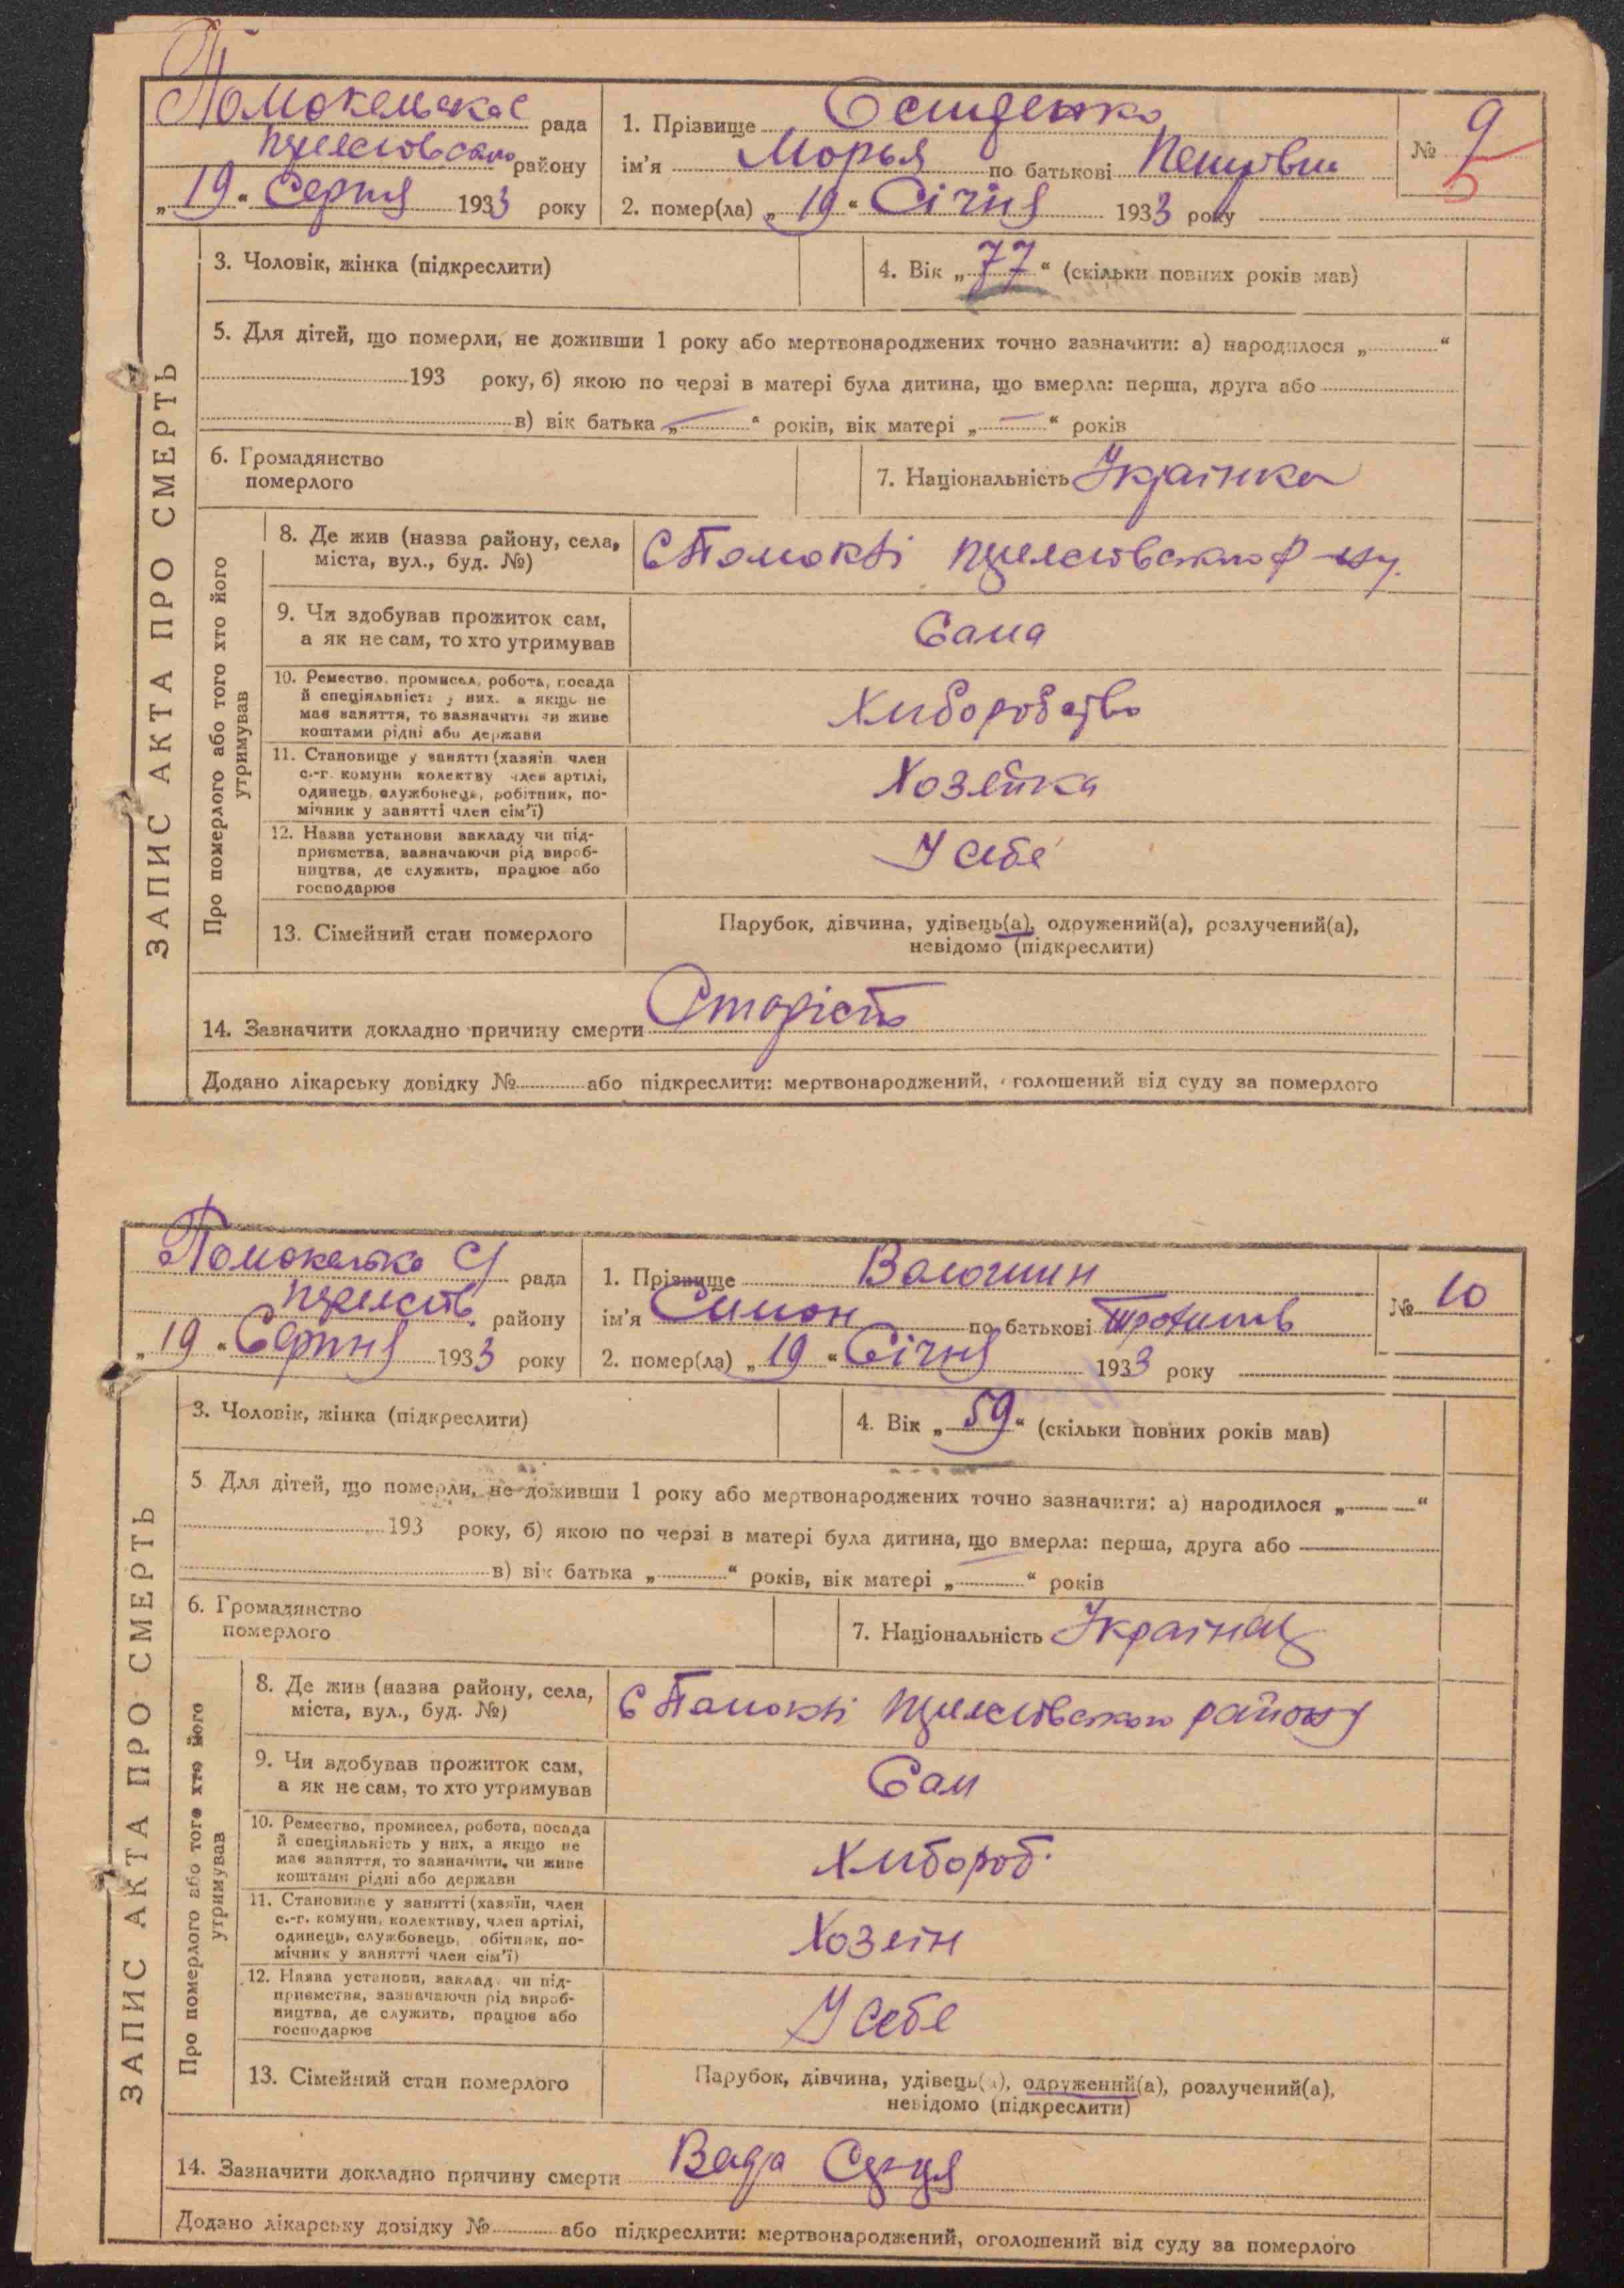 Помокельская рада
району
„19“ Серпня 1933 року
1. Прізвище Осиденко
ім'я Морья по батькові Петрівна
2. помер(ла) „19“ Січня 1933 року
№ 9
ЗАПИС АКТА ПРО СМЕРТЬ
3. Чоловік, жінка (підкреслити)
4. Вік „77“ (скільки повних років мав)
5. Для дітей, що померли, не доживши 1 року або мертвонароджених точно зазначити: а) народилося „ “
193 року, б) якою по черзі в матері була дитина, що вмерла: перша, друга або
в) вік батька „—“ років, вік матері „—“ років
6. Громадянство
померлого
7. Національність Украінка
Про померлого або того хто його
утримував
8. Де жив (назва району, села,
міста, вул., буд. №)
С Помоклі р-ну.
9. Чи здобував прожиток сам,
а як не сам, то хто утримував
Сама
10. Ремество, промисел, робота, посада
й спеціяльність у них, а якщо не
має заняття, то зазначити чи живе
коштами рідні або держави
Хліборобство
11. Становище у занятті (хазяїн член
с.-г. комуни колектву член артілі,
одинець, службовець, робітник, по-
мічник у занятті член сім'ї)
Хозяйка
12. Назва установи закладу чи під-
приємства, зазначаючи рід вироб-
ництва, де служить, працює або
господарює
У себе
13. Сімейний стан померлого
Парубок, дівчина, удівець(а), одружений(а), розлучений(а),
невідомо (підкреслити)
14. Зазначити докладно причину смерти Старість
Додано лікарську довідку № або підкреслити: мертвонароджений, оголошений від суду за померлого
Помокельска С/ рада
району
„19“ Серпня 1933 року
1. Прізвище Волошин
ім'я Симон по батькові Трохимів
2. помер(ла) „19“ Січня 1933 року
№ 10
ЗАПИС АКТА ПРО СМЕРТЬ
3. Чоловік, жінка (підкреслити)
4. Вік „59“ (скільки повних років мав)
5 Для дітей, що померли, не доживши 1 року або мертвонароджених точно зазначити: а) народилося „ “
193 року, б) якою по черзі в матері була дитина, що вмерла: перша, друга або
в) вік батька „ “ років, вік матері „ “ років
6. Громадянство
померлого
7. Національність Украінец
Про померлого або того хто його
утримував
8. Де жив (назва району, села,
міста, вул., буд. №)
С Помоклі району
9. Чи здобував прожиток сам,
а як не сам, то хто утримував
Сам
10. Ремество, промисел, робота, посада
й спеціяльність у них, а якщо не
має заняття, то зазначити, чи живе
коштами рідні або держави
Хлібороб.
11. Становище у занятті (хазяїн, член
с.-г. комуни, колективу, член артілі,
одинець, службовець, обітник, по-
мічник у занятті член сім'ї)
Хозяін
12. Назва установи, заклад чи під-
приємства, зазначаючи рід вироб-
ництва, де служить, працює або
господарює
У себе
13. Сімейний стан померлого
Парубок, дівчина, удівець(а), одружений(а), розлучений(а),
невідомо (підкреслити)
14. Зазначити докладно причину смерти Вада Серця
Додано лікарську довідку № або підкреслити: мертвонароджений, оголошений від суду за померлого